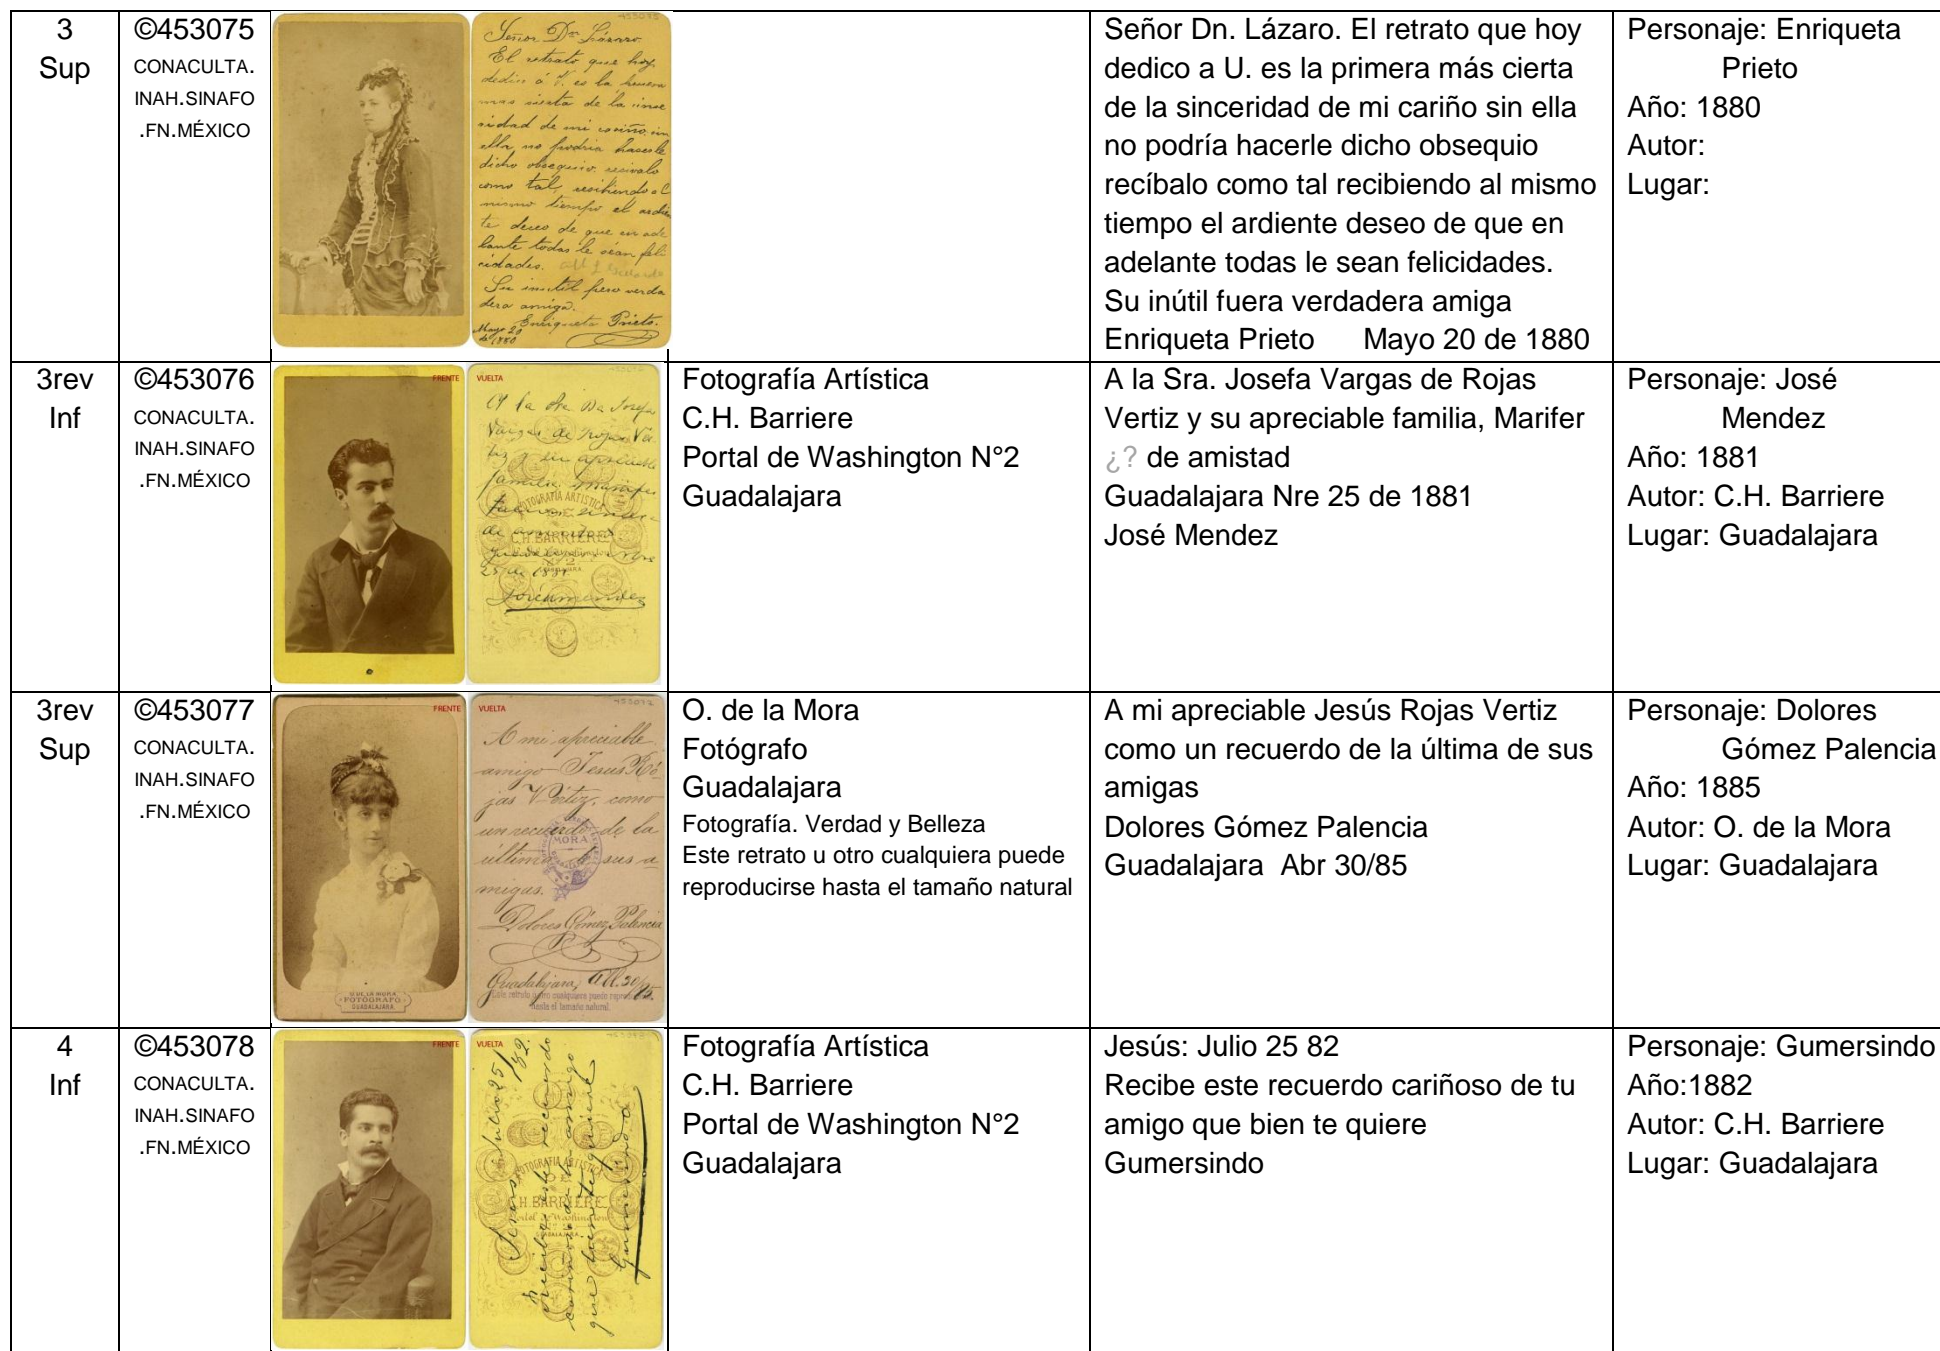 3
Sup
©453075
CONACULTA.
INAH.SINAFO
.FN.MÉXICO
453075
Señor Dn Lázaro.
El retrato que hoy
dedico á V. es la
mas sierta de la since
ridad de mi cariño, sin
ella, no podria hacerle
dicho obsequio, resivalo
como tal, resibiendo al
mismo tiempo el ardien
te deseo de que en ade
lante todas le sean feli
cidades.
Su inutil pero verda
dera amiga.
Enriqueta Prieto.
Mayo 20
de 1880
Señor Dn. Lázaro. El retrato que hoy
dedico a U. es la primera más cierta
de la sinceridad de mi cariño sin ella
no podría hacerle dicho obsequio
recíbalo como tal recibiendo al mismo
tiempo el ardiente deseo de que en
adelante todas le sean felicidades.
Su inútil fuera verdadera amiga
Enriqueta Prieto Mayo 20 de 1880
Personaje: Enriqueta
Prieto
Año: 1880
Autor:
Lugar:
3rev
Inf
©453076
CONACULTA.
INAH.SINAFO
.FN.MÉXICO
FRENTE
VUELTA
A la Sra Da Josefa
Vargas de Rojas Ver
tiz y su apreciable
familia
FOTOGRAFIA ARTISTICA
DE
C.H. BARRIERE
Portal de Washington
Nº 2
GUADALAJARA
25 de 1881
José Mendez
Fotografía Artística
C.H. Barriere
Portal de Washington N°2
Guadalajara
A la Sra. Josefa Vargas de Rojas
Vertiz y su apreciable familia, Marifer
¿? de amistad
Guadalajara Nre 25 de 1881
José Mendez
Personaje: José
Mendez
Año: 1881
Autor: C.H. Barriere
Lugar: Guadalajara
3rev
Sup
©453077
CONACULTA.
INAH.SINAFO
.FN.MÉXICO
FRENTE
O. DE LA MORA
FOTOGRAFO
GUADALAJARA.
VUELTA
453077
A mi apreciable
amigo Jesus Ró
jas Vértiz, como
un recuerdo de la
última de sus a
migas.
MORA
Dolores Gómez Palencia
Guadalajara, Abl. 30/85.
Este retrato u otro cualquiera puede reproducirse
hasta el tamaño natural.
O. de la Mora
Fotógrafo
Guadalajara
Fotografía. Verdad y Belleza
Este retrato u otro cualquiera puede
reproducirse hasta el tamaño natural
A mi apreciable Jesús Rojas Vertiz
como un recuerdo de la última de sus
amigas
Dolores Gómez Palencia
Guadalajara Abr 30/85
Personaje: Dolores
Gómez Palencia
Año: 1885
Autor: O. de la Mora
Lugar: Guadalajara
4
Inf
©453078
CONACULTA.
INAH.SINAFO
.FN.MÉXICO
FRENTE
VUELTA
Jesus: Julio 25/82.
Recibe este recuerdo
cariñoso de tu amigo
que bien te quiere
Gumersindo
FOTOGRAFIA ARTISTICA
DE
C.H. BARRIERE
Portal de Washington
Nº 2
GUADALAJARA.
Fotografía Artística
C.H. Barriere
Portal de Washington N°2
Guadalajara
Jesús: Julio 25 82
Recibe este recuerdo cariñoso de tu
amigo que bien te quiere
Gumersindo
Personaje: Gumersindo
Año:1882
Autor: C.H. Barriere
Lugar: Guadalajara